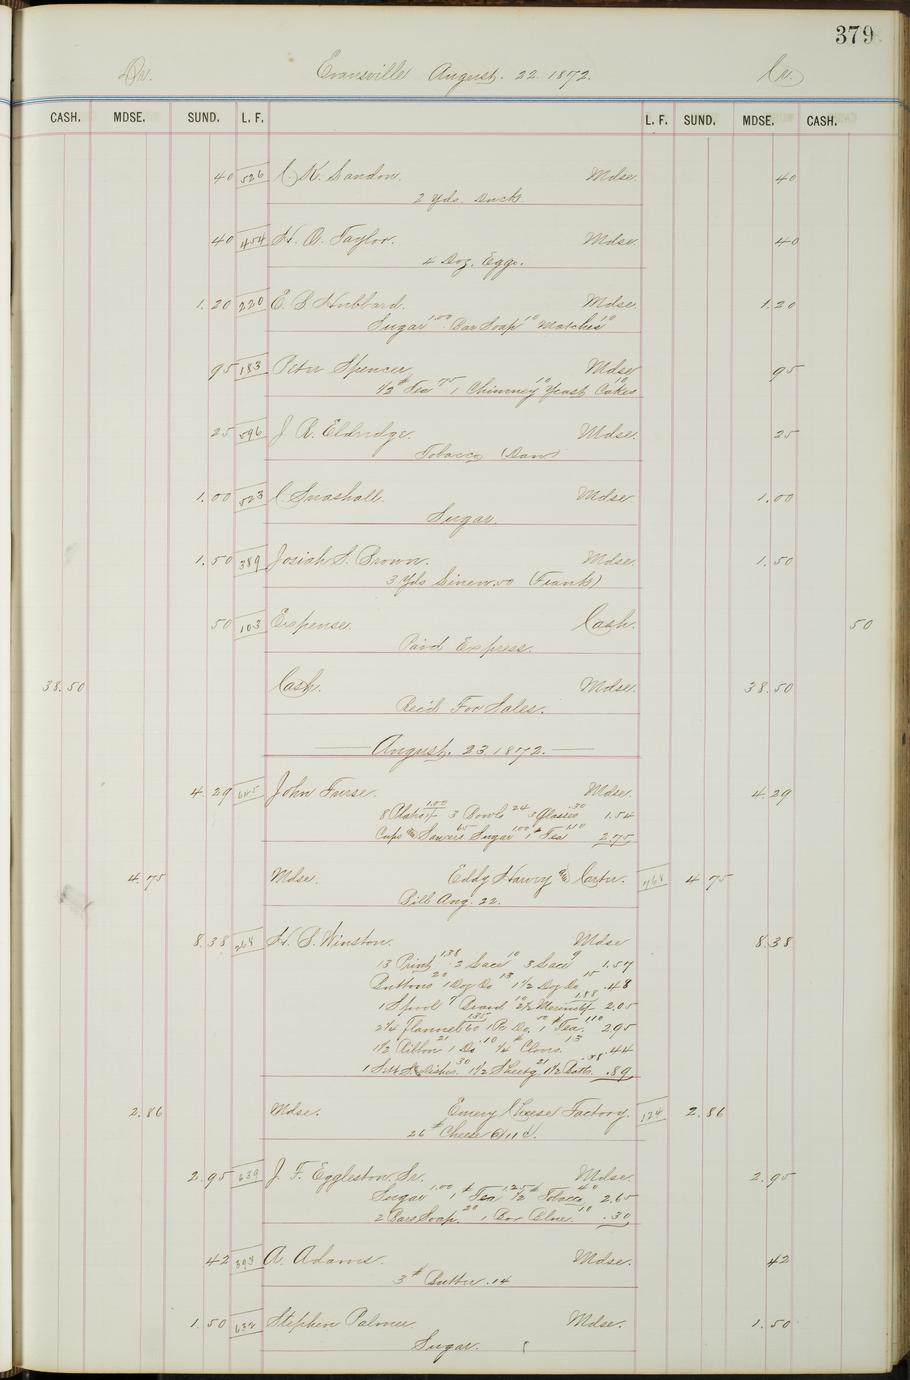 379
Dr. Evansville August. 22. 1872. Cr.
CASH. MDSE. SUND. L. F. L. F. SUND. MDSE. CASH.
40 526 C. K. Landon. Mdse. 40
2 Yds. Duck
40 454 H. A. Taylor. Mdse. 40
4 Doz. Eggs.
1.20 220 E. S. Hubbard. Mdse. 1.20
Sugar 1.00 Bar Soap 10 Matches 10
95 183 Peter Spencer Mdse 95
1/2 # Tea 75 1 Chimney 10 Yeast Cakes 10
25 596 J. R. Eldridge. Mdse. 25
Tobacco (Dan)
1.00 523 C. Snashall. Mdse. 1.00
Sugar.
1.50 389 Josiah S. Brown. Mdse. 1.50
3 Yds Linen .50 (Frank)
50 103 Expense Cash. 50
Paid Express.
38.50 Cash. Mdse. 38.50
Rec'd For Sales.
August. 23. 1872.
4.29 645 John Furse. Mdse. 4.29
8 Plates 1.00 3 Bowls 24 3 Glasses .30 1.54
Cups & Saucers 65 Sugar 1.00 1 # Tea 1.10 2.75
4.75 Mdse. Eddy Harvey & Carter. 768 4 75
Bill Aug. 22.
8.38 268 H. S. Winston. Mdse 8.38
13 Print 1.38 2 Lace 10 3 Lace 9 1.57
Buttons 20 1 Doz Do 13 1 1/2 Doz Do 15 .48
1 Spool 7 Braid 10 2 1/2 Merino 1.88 2.05
2 1/4 Flannel 60 1.35 1 Pr Do. 50 1 # Tea. 1.10 2.95
1 1/2 Ribbon 21 1 Do .10 1/4 # Cloves. 13 .44
1 Sett Dishes. 30 1 1/2 Sheetg 21 1 1/2 Batts. .38 .89
2.86 Mdse. Emery Cheese Factory. 124 2.86
26 # Cheese @ 11¢.
2.95 639 J. F. Eggleston. Sr. Mdse. 2.95
Sugar 1.00 1 # Tea 1.25 1/2 # Tobacco 40 2.65
2 Bars Soap. 20 1 Box Blue. 10 .30
42 393 A. Adams. Mdse. 42
3 # Butter .14
1.50 632 Stephen Palmer. Mdse. 1.50
Sugar.